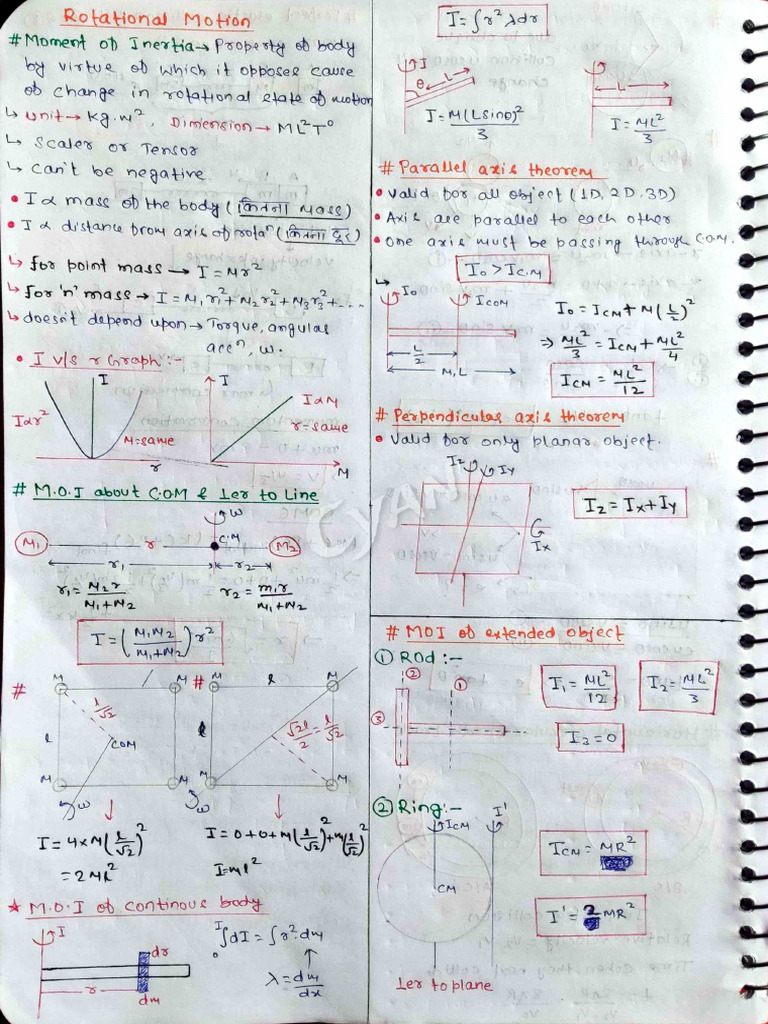 Rotational Motion
# Moment of Inertia → Property of body
by virtue of which it opposes cause
of change in rotational state of motion
↳ unit → kg.m², Dimension → ML²T⁰
↳ Scaler or Tensor
↳ can't be negative
• I α mass of the body (कितना Mass)
• I α distance from axis of rotaⁿ (कितना दूर)
↳ for point mass → I = Mr²
↳ for 'n' mass → I = M₁r₁² + M₂r₂² + M₃r₃² + ....
↳ doesn't depend upon → Torque, angular
accⁿ, ω.
• I v/s r Graph :-
I
I
Iαr²
M=same
r
IαM
r=same
M
# M.O.I about C.O.M & ⊥er to Line
ω
M₁
r
C.M
M₂
r₁
r₂
r₁ = M₂r/M₁+M₂
r₂ = m₁r/M₁+M₂
I = (M₁M₂/M₁+M₂) r²
#
M
M
#
l
M
M
l/√2
l
COM
l
√2l/2 = l/√2
M
M
M
M
ω
ω
I = 4×M(l/√2)²
= 2Ml²
I = 0+0+M(l/√2)²+M(l/√2)²
I=ml²
★ M.O.I of continous body
I
dr
r
dm
∫dI = ∫r².dm
λ = dm/dx
I = ∫r²λdr
I
θ
L
I = M(Lsinθ)²/3
L
I = ML²/3
# Parallel axis theorem
• Valid for all object (1D, 2D, 3D)
• Axis are parallel to each other
• One axis must be passing through C.O.M.
I₀ > I_C.M
↳
I₀
I_COM
L/2
M,L
I₀ = I_CM + M(L/2)²
⇒ ML²/3 = I_CM + ML²/4
I_CM = ML²/12
# Perpendicular axis theorem
• Valid for only planar object.
Iz
Iy
Ix
Iz = Ix+Iy
# MOI of extended object
① Rod :-
②
①
③
I₁ = ML²/12
I₂ = ML²/3
I₃ = 0
② Ring :-
I_CM
I'
CM
⊥er to plane
I_CM = MR²
I' = 2MR²
CYAN